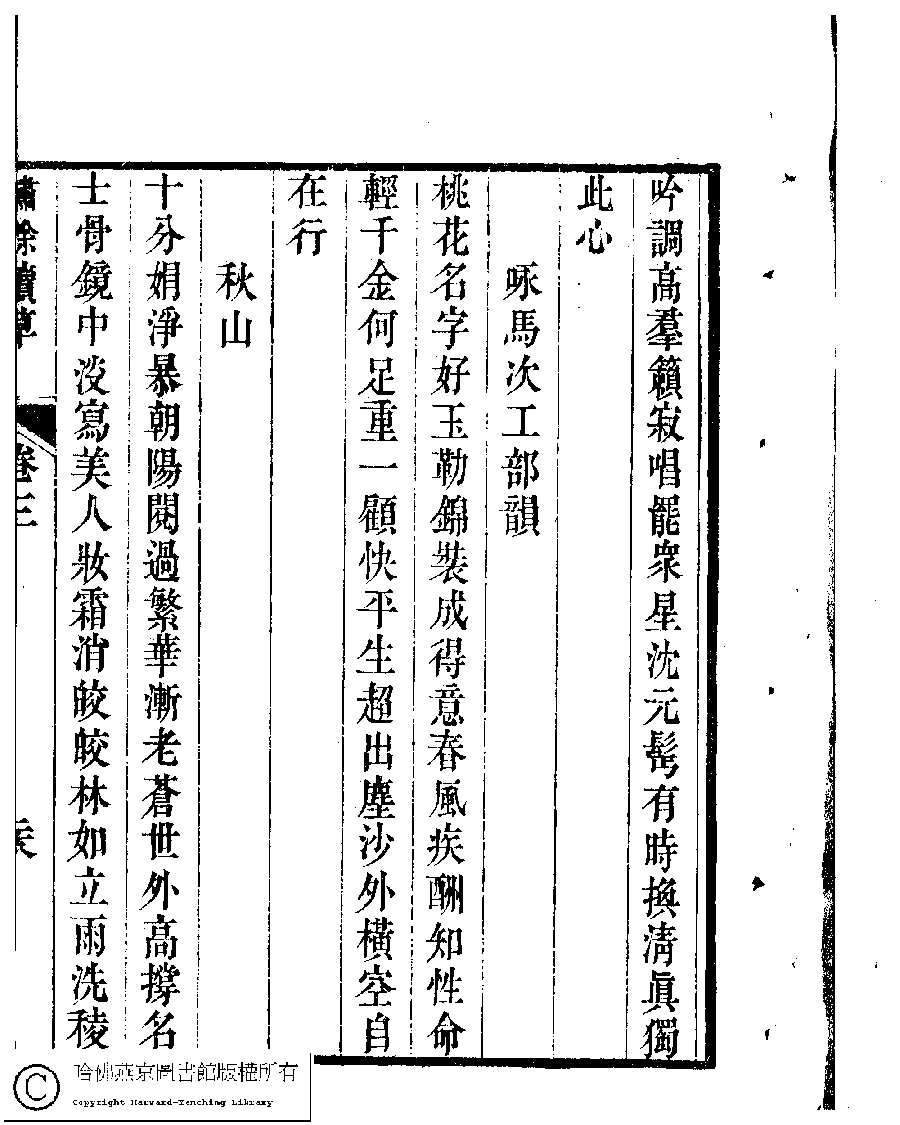 吟調高羣籟寂唱罷衆星沈元髩有時換淸眞獨
此心
咏馬次工部韻
桃花名字好玉勒錦裝成得意春風疾酬知性命
輕千金何足重一顧快平生超出塵沙外橫空自
在行
秋山
十分娟淨暴朝陽閱過繁華漸老蒼世外高撐名
士骨鏡中淡寫美人妝霜消皎皎林如立雨洗稜
續草
卷三
哈佛燕京圖書館版權所有
Copyright Harvard-Yenching Library